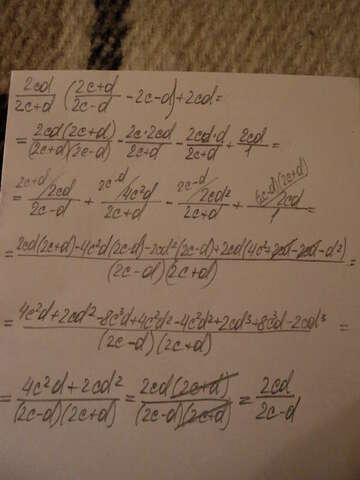 2cd/(2c+d) ((2c+d)/(2c-d) - 2c-d) + 2cd =
= 2cd(2c+d)/((2c+d)(2c-d)) - 2c·2cd/(2c+d) - 2cd·d/(2c+d) + 2cd/1 =
= 2c+d/ 2cd/(2c-d) + 2c-d/ 4c²d/(2c+d) - 2c-d/ 2cd²/(2c+d) + (2c-d)(2c+d)/ 2cd/1 =
= (2cd(2c+d)-4c²d(2c-d)-2cd²(2c-d)+2cd(4c²+2cd-2cd-d²))/((2c-d)(2c+d)) =
= (4c²d+2cd²-8c³d+4c²d²-4c²d²+2cd³+8c³d-2cd³)/((2c-d)(2c+d)) =
= (4c²d+2cd²)/((2c-d)(2c+d)) = 2cd(2c+d)/((2c-d)(2c+d)) = 2cd/(2c-d)